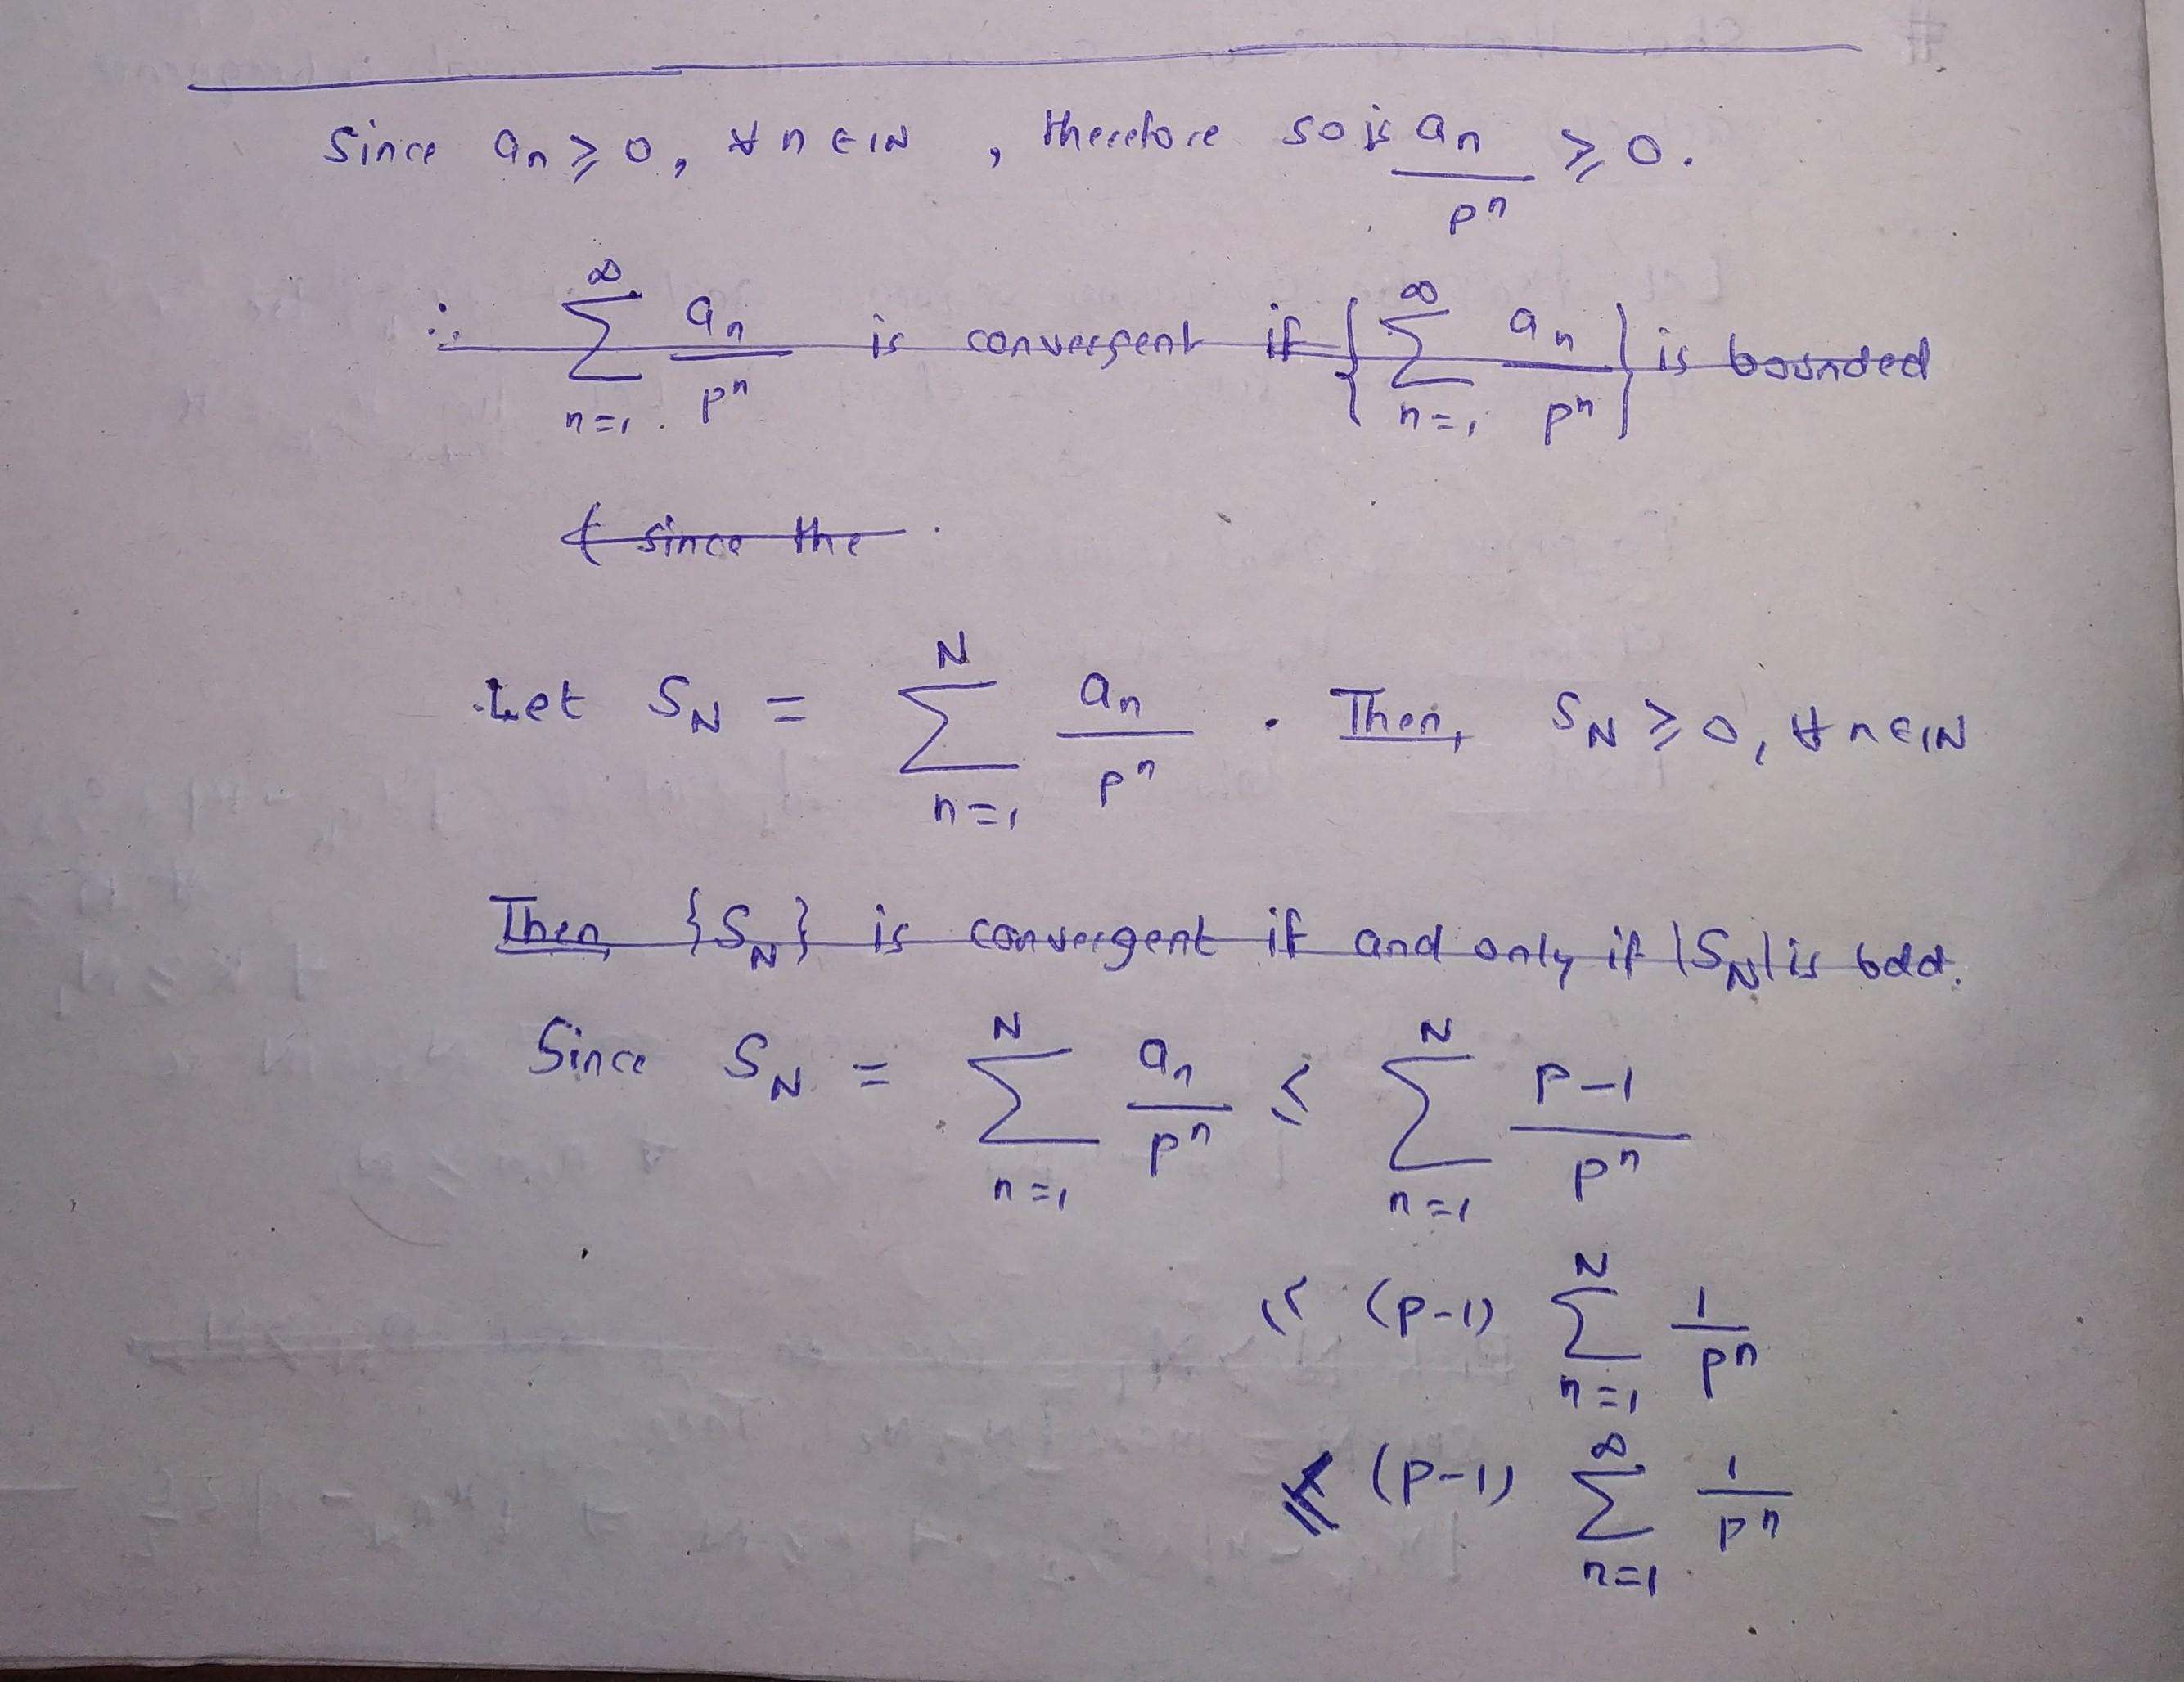 Since aₙ ⩾ 0, ∀ n ∈ ℕ , therefore so is aₙ/pⁿ ⩾ 0.
∴ ∑_{n=1}^{∞} aₙ/pⁿ is convergent if {∑_{n=1}^{∞} aₙ/pⁿ} is bounded
( since the
Let S_N = ∑_{n=1}^{N} aₙ/pⁿ . Then, S_N ⩾ 0, ∀ n ∈ ℕ
Then, {S_N} is convergent if and only if |S_N| is bdd.
Since S_N = ∑_{n=1}^{N} aₙ/pⁿ ⩽ ∑_{n=1}^{N} (p-1)/pⁿ
⩽ (p-1) ∑_{n=1}^{N} 1/pⁿ
⩽ (p-1) ∑_{n=1}^{∞} 1/pⁿ